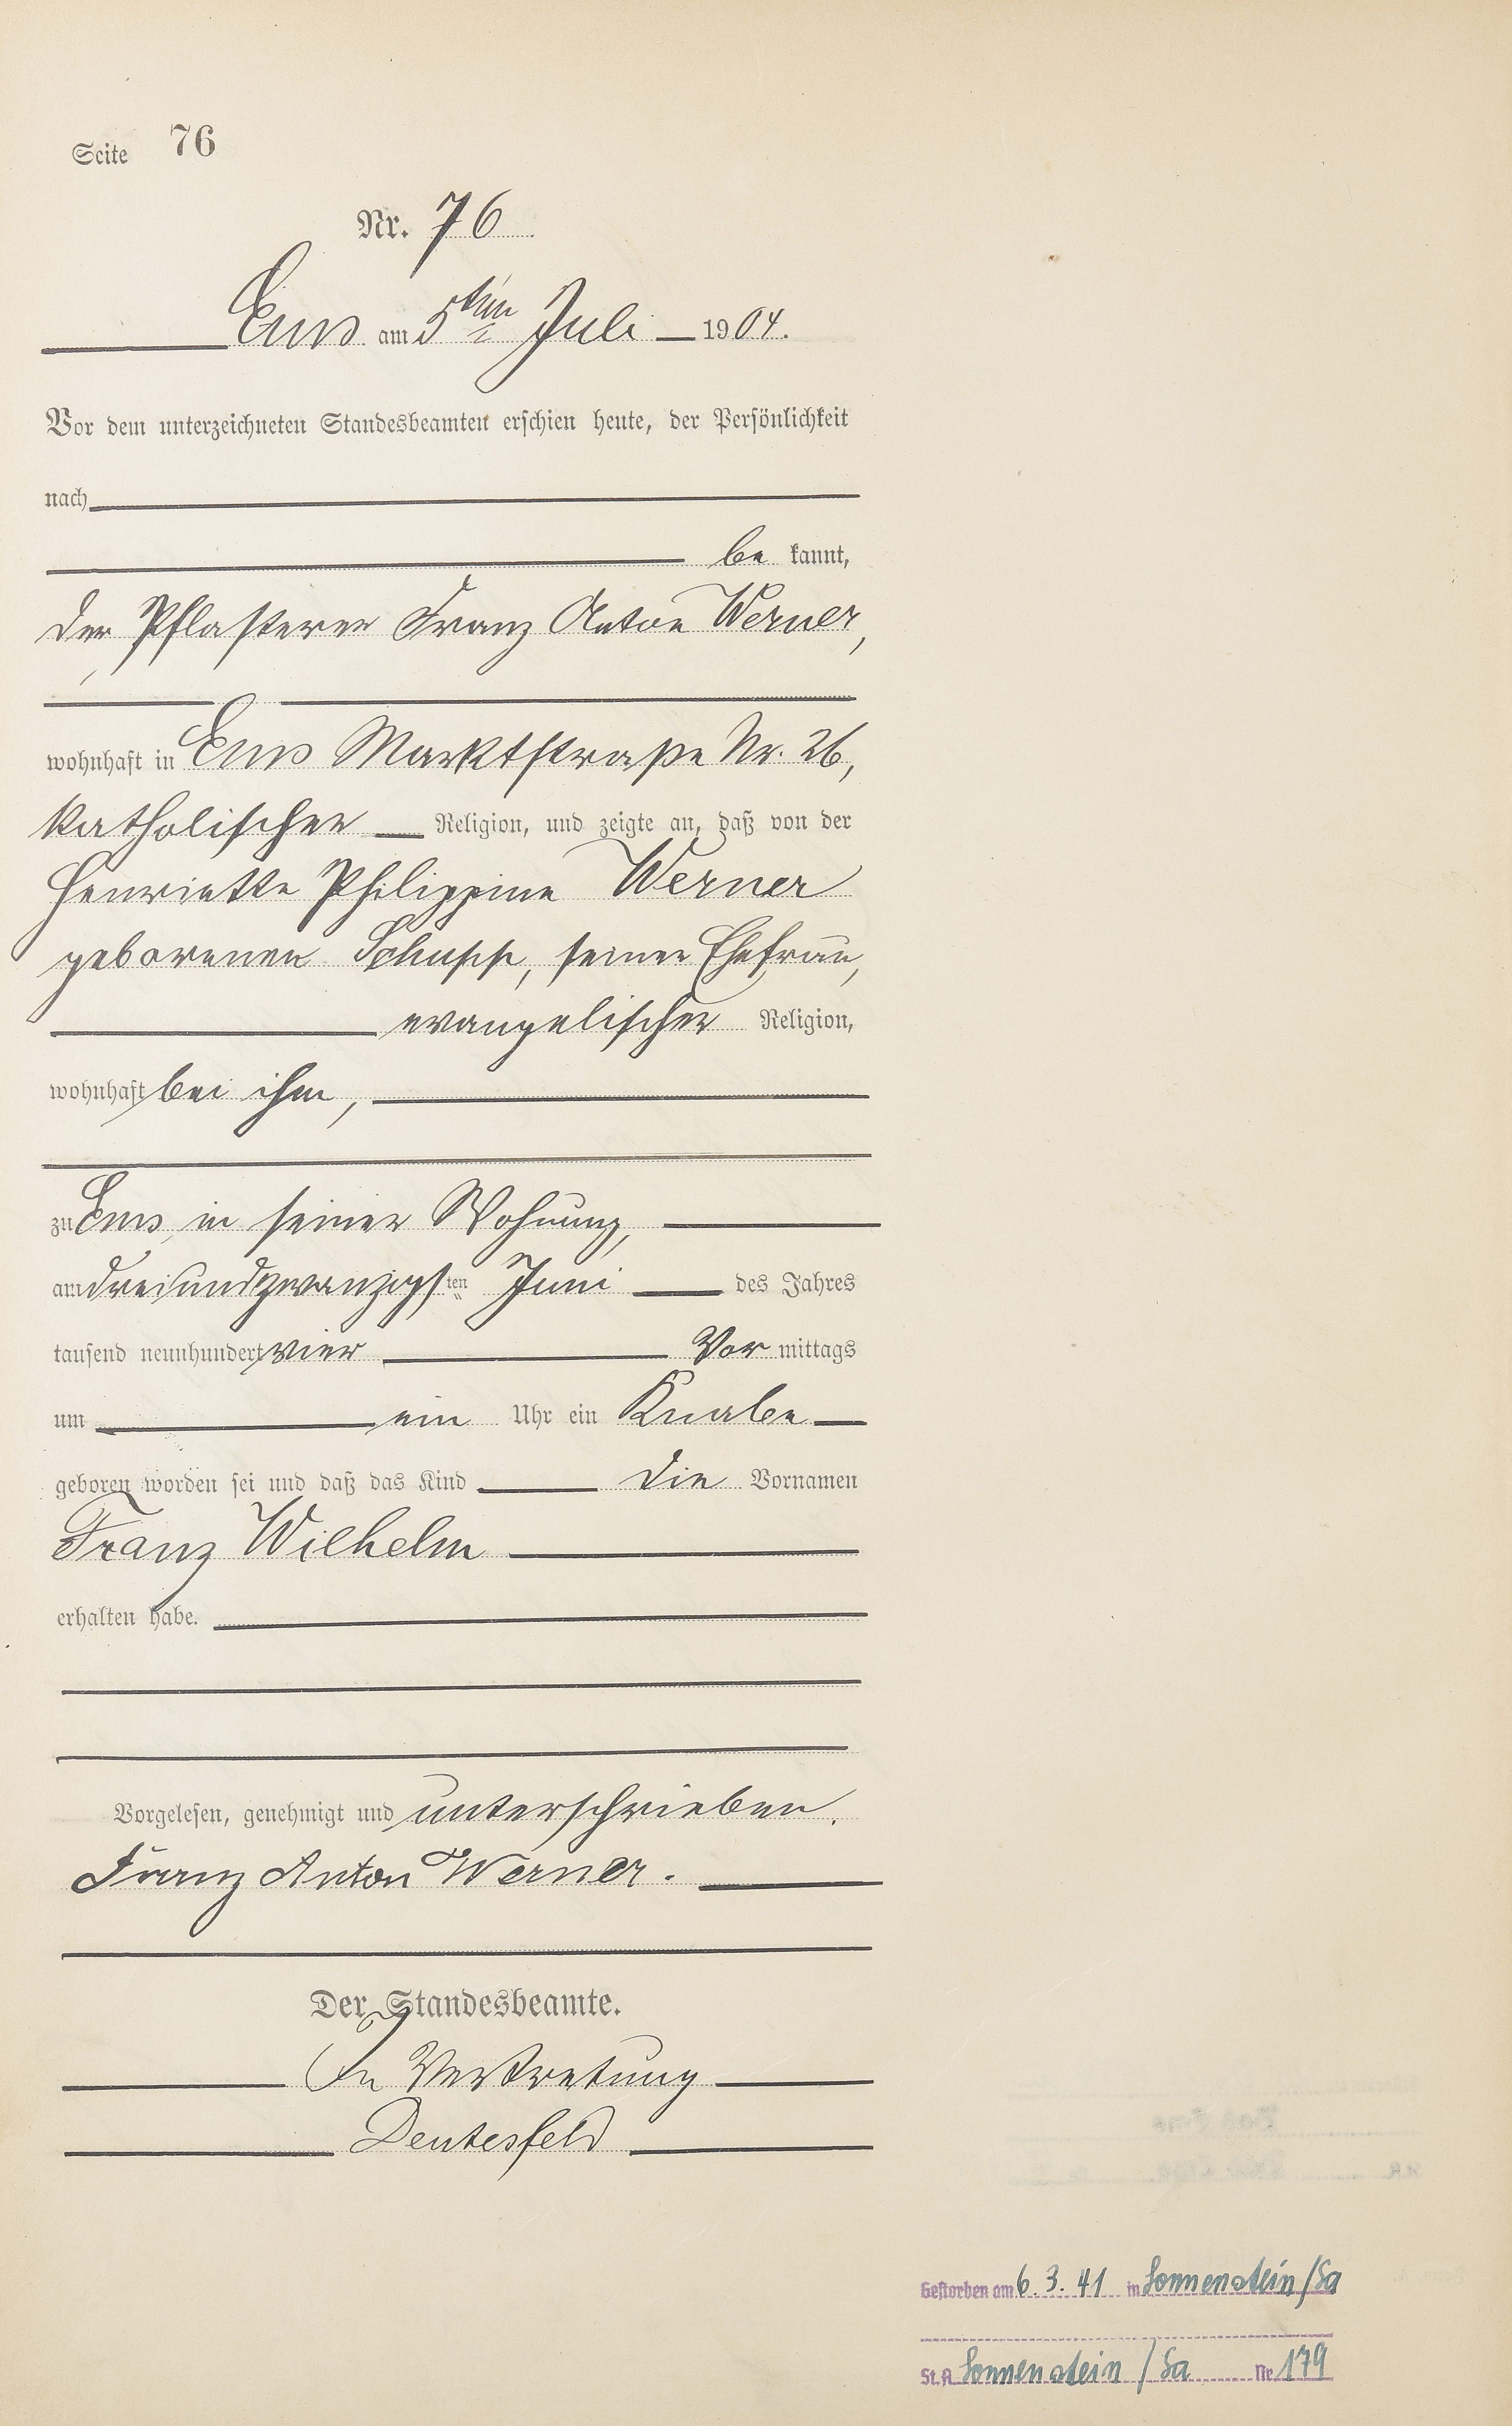 Seite 76
Nr. 76
Ems am 5ten Juli 1904.
Vor dem unterzeichneten Standesbeamten erschien heute, der Persönlichkeit
nach
be kannt,
der Pflasterer Franz Anton Werner,
wohnhaft in Ems Marktstraße Nr. 26,
katholischer Religion, und zeigte an, daß von der
Henriette Philippine Werner
geborenen Schupp, seiner Ehefrau,
evangelischer Religion,
wohnhaft bei ihm,
zu Ems, in seiner Wohnung,
am dreiundzwanzigsten Juni des Jahres
tausend neunhundert vier Vor mittags
um ein Uhr ein Knabe
geboren worden sei und daß das Kind die Vornamen
Franz Wilhelm
erhalten habe.
Vorgelesen, genehmigt und unterschrieben.
Franz Anton Werner.
Der Standesbeamte.
In Vertretung
Deutesfeld
Gestorben am 6. 3. 41 in Sonnenstein/Sa
St. A. Sonnenstein / Sa Nr. 179